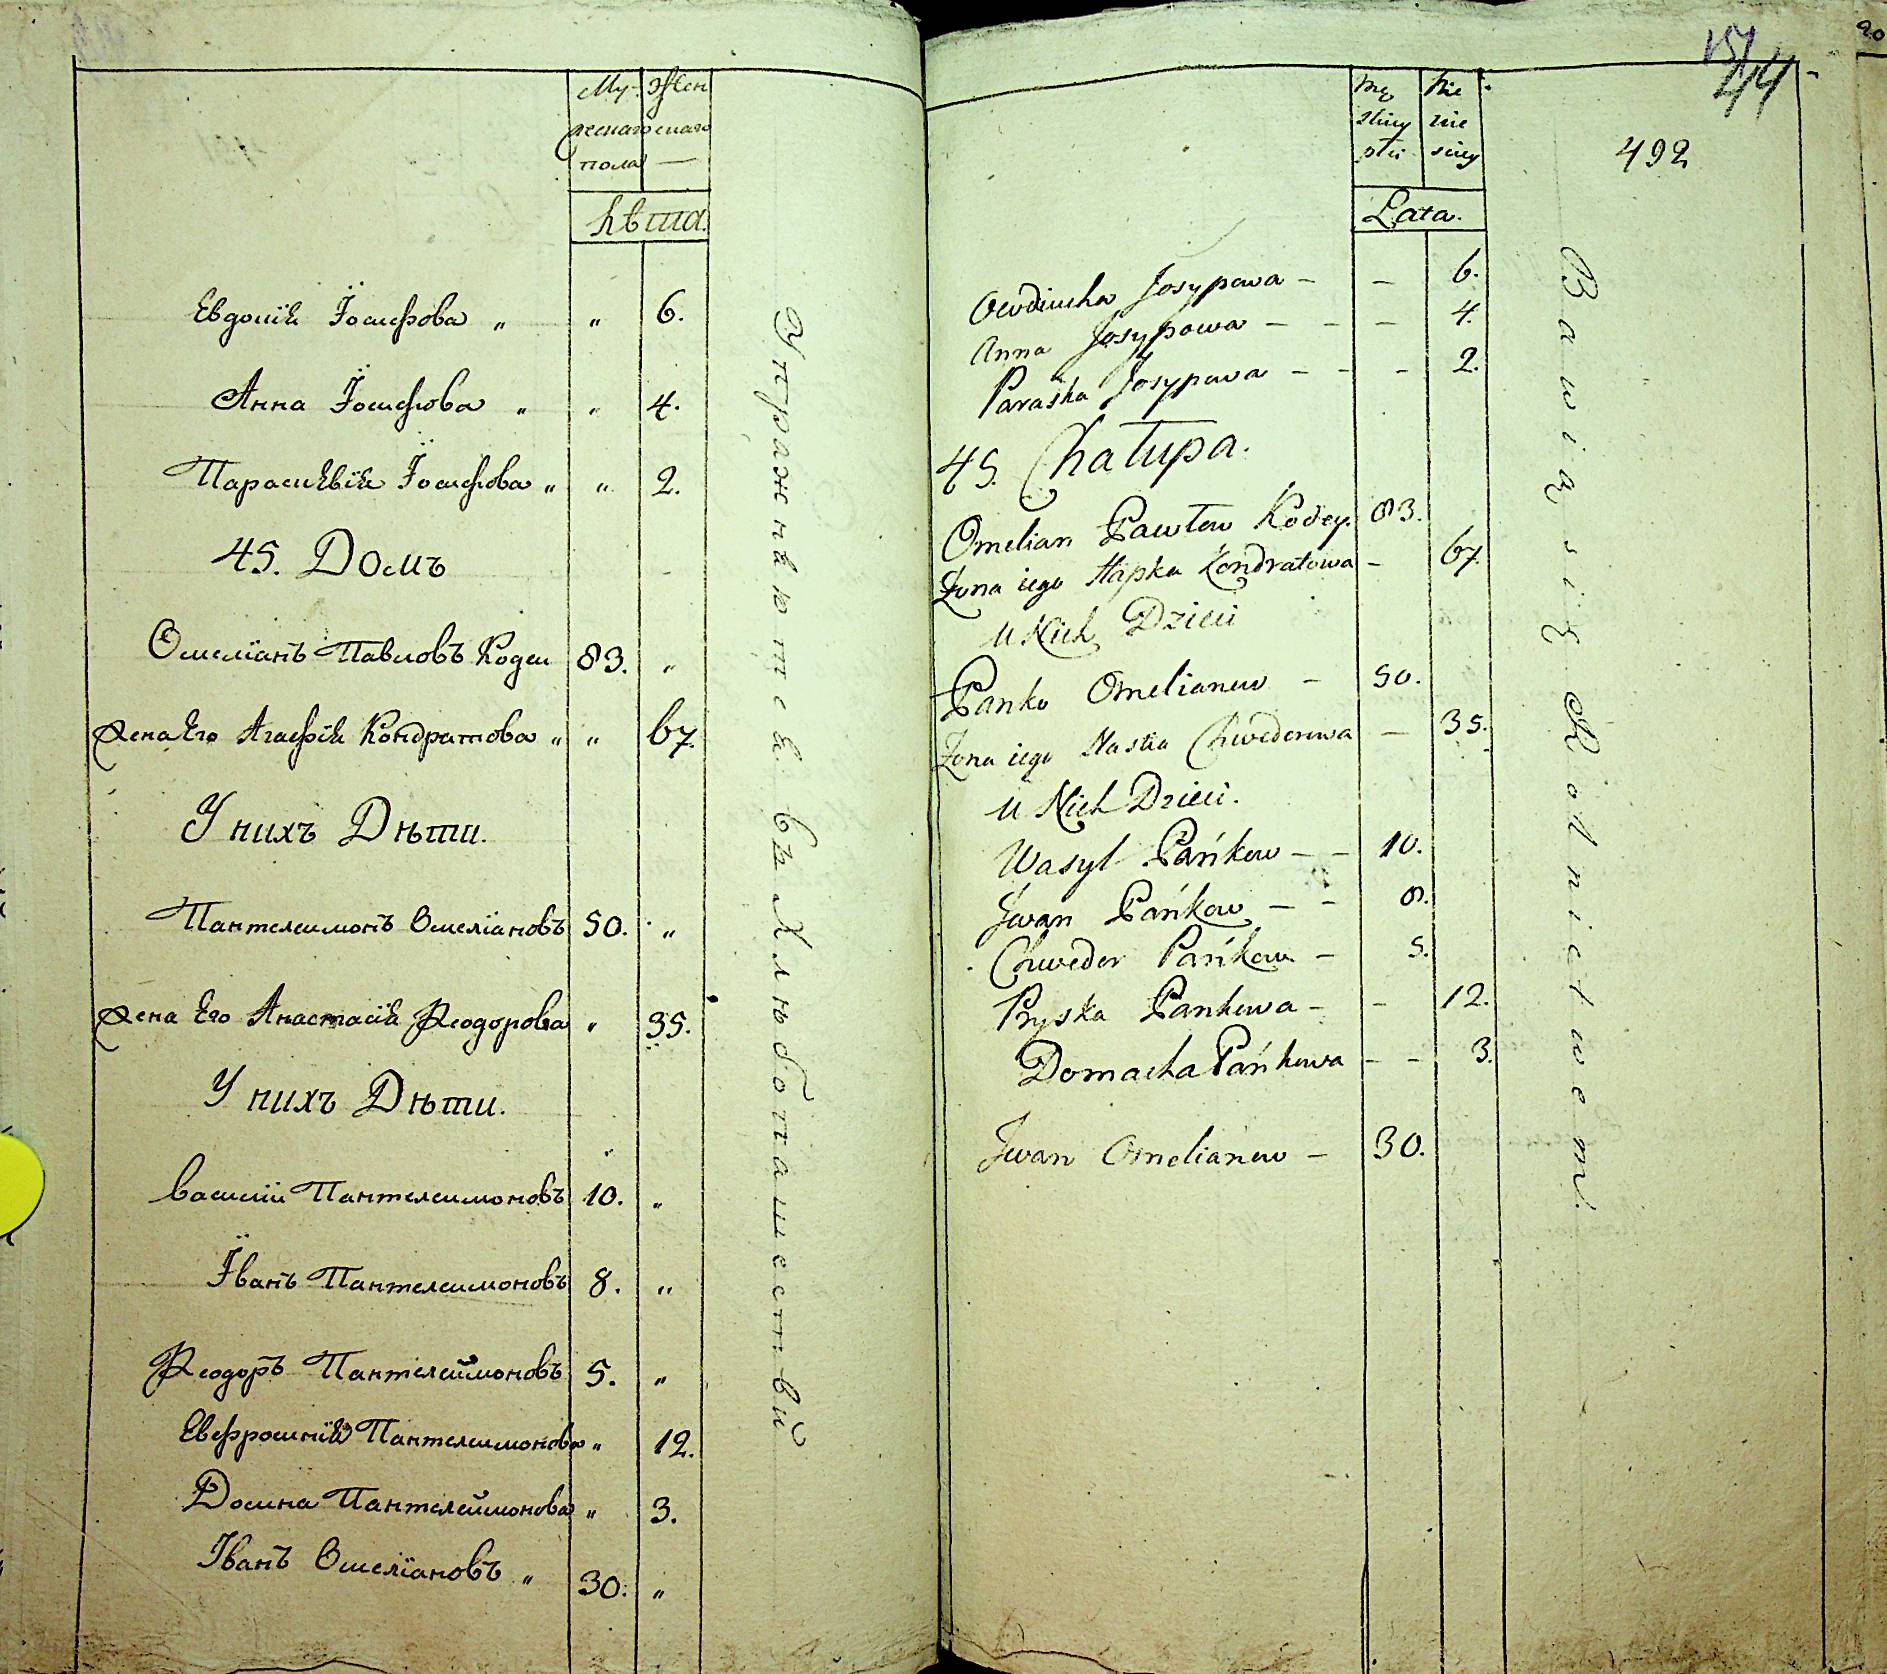 Му- Жен
жескаго скаго
пола —
Лѣта.
Евдокія Іосифова „ „ 6.
Анна Іосифова „ „ 4.
Параскѣвія Іосифова „ „ 2.
45. Домъ
Омеліанъ Павловъ Кодеи 83. „
Жена Его Агафія Кондратова „ „ 67.
У нихъ Дѣти.
Пантелеимонъ Омеліановъ 50. „
Жена Его Анастасія Феодорова „ 35.
У нихъ Дѣти.
Василій Пантелеимоновъ 10. „
Іванъ Пантелеимоновъ 8. „
Феодоръ Пантелеймоновъ 5. „
Евфросинія Пантелеимонова „ 12.
Домна Пантелеймонова „ 3.
Іванъ Омеліановъ „ 30. „
Упражняются въ Хлѣбопашествѣ
44
492
20
Mę Nie
skiey wie
płci sciey
Lata.
Owdiucha Josypowa – – 6.
Anna Josypowa – – – 4.
Paraska Josypowa – – – 2.
45. Chałupa.
Omelian Pawłow Kodey. 83.
Żona iego Hapka Kondratowa – 67.
u Nich Dzieci
Panko Omelianow – 50.
Żona iego Nastia Chwedorowa – 35.
u Nich Dzieci.
Wasyl Pańkow – – 10.
Jwan Pańkow – – 8.
Chwedor Pańkow – 5.
Pryska Pankowa – – 12.
Domacha Pańkowa – – 3.
Jwan Omelianow – 30.
Bawią się Rolnictwem.